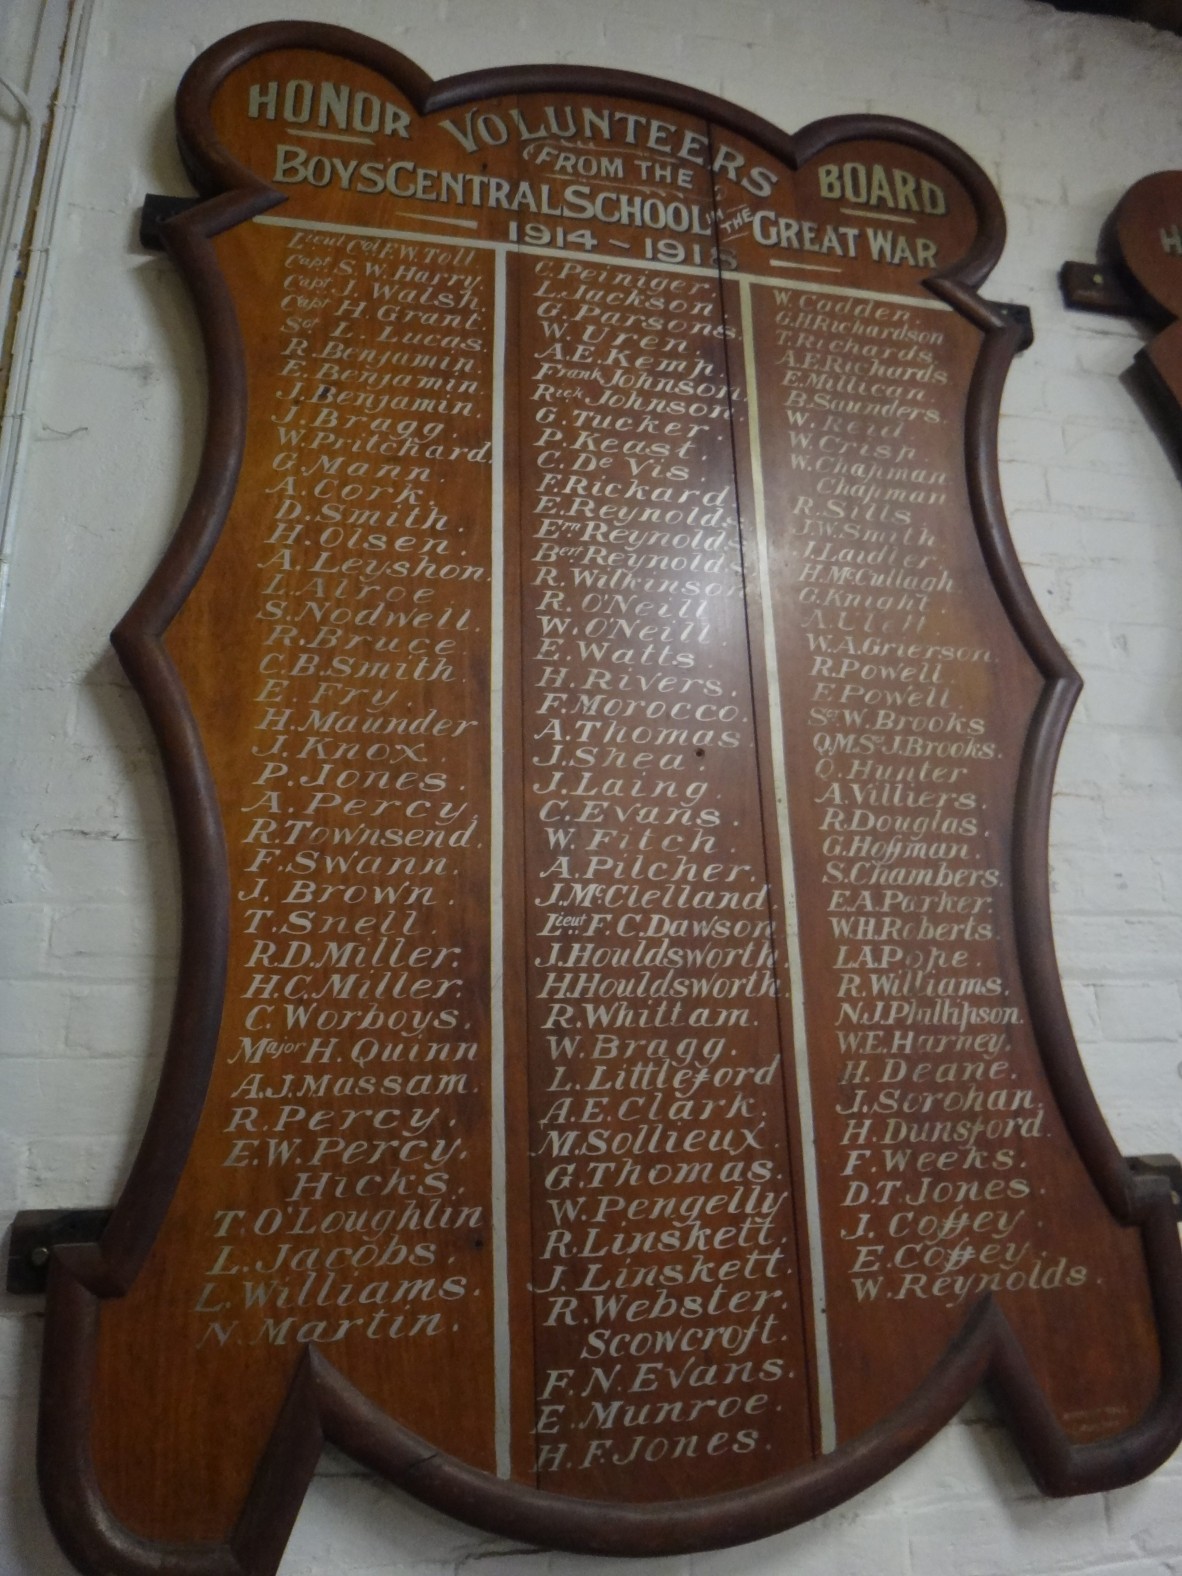 HONOR VOLUNTEERS BOARD
(FROM THE
BOYS' CENTRAL SCHOOL IN THE GREAT WAR
1914 ~ 1918
Lieut Col. F.W. Toll
Capt S.W. Harry.
Capt J. Walsh.
Capt H. Grant.
Sgt L. Lucas.
R. Benjamin.
E. Benjamin.
J. Benjamin.
J. Bragg.
W. Pritchard.
G. Mann.
A. Cork.
D. Smith.
H. Olsen.
A. Leyshon.
Alroe
S. Nodwell.
R. Bruce
C.B. Smith.
E. Fry.
H. Maunder
J. Knox.
P. Jones.
A. Percy.
R. Townsend.
F. Swann.
J. Brown.
T. Snell.
R.D. Miller.
H.C. Miller.
C. Worboys.
Major H. Quinn
A.J. Massam.
R. Percy.
E.W. Percy.
Hicks.
T. O'Loughlin
L. Jacobs.
L. Williams.
N. Martin.
C. Peiniger.
L. Jackson
G. Parsons.
W. Uren.
A.E. Kemp.
Frank Johnson.
Rick Johnson.
G. Tucker.
P. Keast.
C. De Vis.
F. Rickard.
E. Reynolds.
Ern Reynolds.
Bert Reynolds.
R. Wilkinson
R. O'Neill
W. O'Neill
E. Watts.
H. Rivers.
F. Morocco.
A. Thomas.
J. Shea.
J. Laing.
C. Evans.
W. Fitch.
A. Pilcher.
J. McClelland.
Lieut F.C. Dawson
J. Houldsworth.
H. Houldsworth.
R. Whittam.
W. Bragg.
L. Littleford
A.E. Clark.
M. Sollieux.
G. Thomas.
W. Pengelly
R. Linskett.
J. Linskett.
R. Webster.
Scowcroft.
F.N. Evans.
E. Munroe.
H.F. Jones.
W. Cadden.
G.H. Richardson
T. Richards.
A.E. Richards.
E. Millican.
B. Saunders.
W. Reid.
W. Crisp
W. Chapman
Chapman
R. Sills
J.W. Smith
J. Laidler
H. McCullagh
G. Knight.
W.A. Grierson.
R. Powell
Powell
Sgt W. Brooks
Q.M. Sgt J. Brooks.
Hunter
A. Villiers.
R. Douglas.
G. Hoffman.
S. Chambers.
E.A. Parker.
W.H. Roberts.
L.A. Pope.
R. Williams.
N.J. Phillipson.
W.E. Harney.
H. Deane.
J. Sorohan
H. Dunsford.
F. Weeks.
D.T. Jones.
J. Coffey.
E. Coffey.
W. Reynolds.